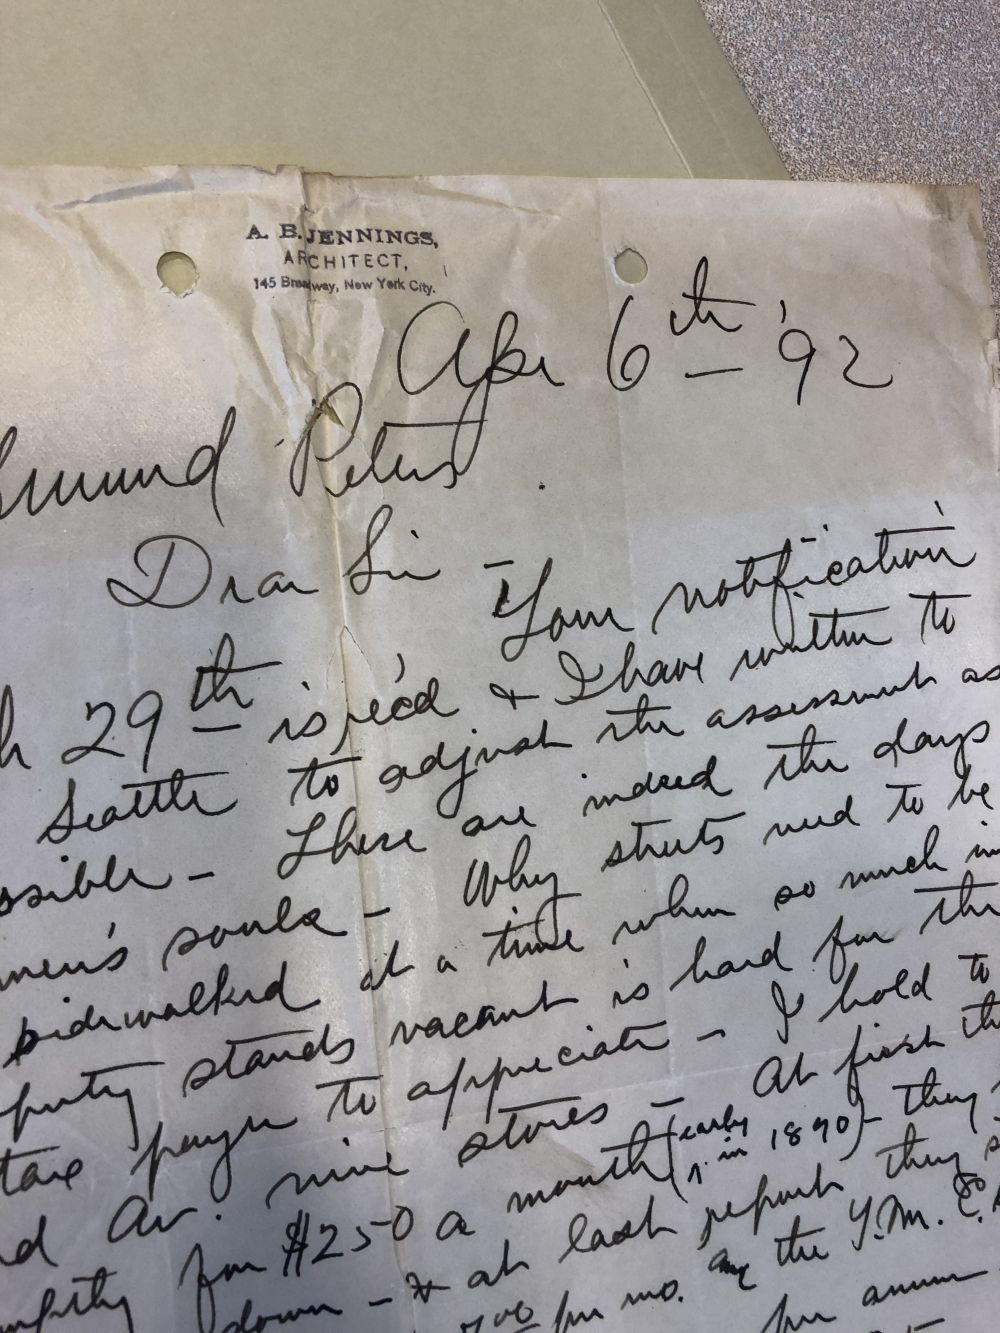 A. B. JENNINGS,
ARCHITECT,
145 Broadway, New York City.
Apr 6th '92
dmund Peters.
Dear Sir - Your notification
h 29th is rec'd & I have written to
Seattle to adjust the assessment as
ossible - These are indeed the days
men's souls - Why streets need to be
sidewalked at a time when so much im
perty stands vacant is hard for the
tax payer to appreciate - I hold to
d Av. nine stores - At first the
for $250 a month (early in 1890) - they
down - & at last report they s
per mo. the Y.M.C.
per annum